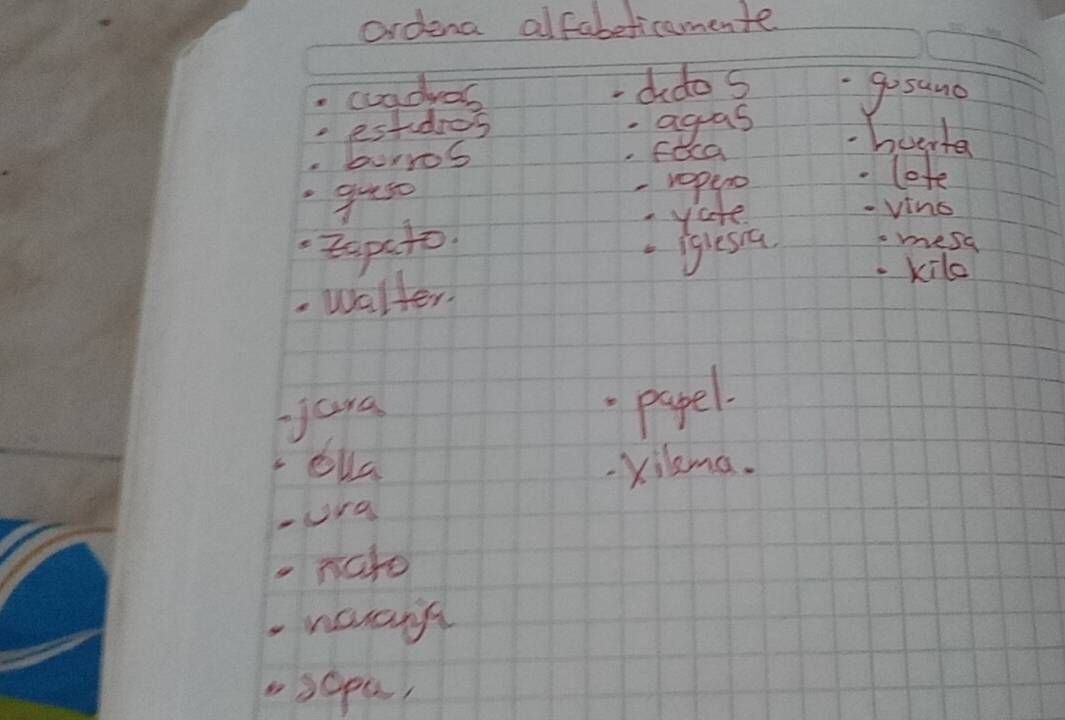 Ordena alfabeticamente
• cuadros
• estudios
• burros
• queso
• zapato.
• walter.
• dedos
• aguas
• Foca
• ropero
• yate
• iglesia
• gusano
• huerta
• lote
• vino
• mesa
• kilo
- jara
• olla
- uva
• ñato
• naranja
• sopa,
• papel.
- Xilema.